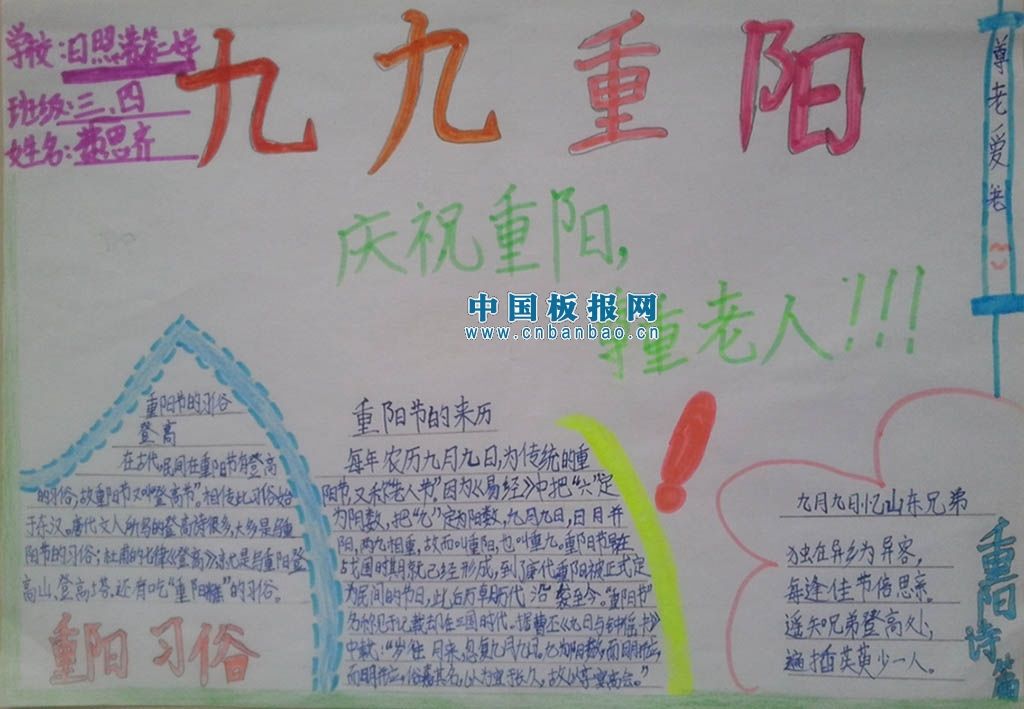 学校:日照
班级:三、四
姓名:
九九重阳
尊老爱老
庆祝重阳,
尊重老人!!!
中国板报网
www.cnbanbao.cn
重阳节的习俗
登高
在古代,民间在重阳节有登高
的习俗,故重阳节又叫“登高节”。相传此习俗始
于东汉。唐代文人所写的登高诗很多,大多是写重
阳节的习俗;杜甫的七律《登高》,就是写重阳登
高山、登高塔。还有吃“重阳糕”的习俗。
重阳习俗
重阳节的来历
每年农历九月九日,为传统的重
阳节,又称《老人节》因为《易经》中把“六”定
为阴数,把“九”定为阳数,九月九日,日月并
阳,两九相重,故而叫重阳,也叫重九。重阳节早在
战国时期就已经形成,到了唐代重阳被正式定
为民间的节日,此后历朝历代沿袭至今。“重阳节”
名称见于记载却在三国时代。据曹丕《九日与钟繇书》
中载:“岁往月来,忽复九月九日。九为阳数,而日月并应,
俗嘉其名,以为宜于长久,故以享宴高会。”
!
九月九日忆山东兄弟
独在异乡为异客,
每逢佳节倍思亲。
遥知兄弟登高处,
遍插茱萸少一人。
重阳诗篇